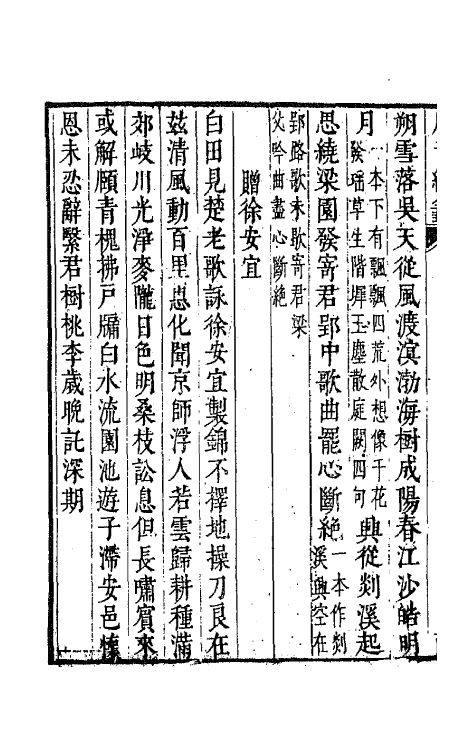 朔雪落吳天從風渡溟渤海樹成陽春江沙皓明
月一本下有飄飄四荒外想像千花
發瑶草生階墀玉塵散庭闕四句興從剡溪起
思繞梁園發寄君郢中歌曲罷心斷絶一本作剡
溪興空在
郢路歌未歇寄君梁
父吟曲盡心斷絶
贈徐安宜
白田見楚老歌詠徐安宜製錦不擇地操刀良在
兹清風動百里惠化聞京師浮人若雲歸耕種滿
郊岐川光淨麥隴日色明桑枝訟息但長嘯賓來
或解頤青槐拂戸牖白水流園池遊子滯安邑懷
恩未忍辭繄君樹桃李歲晚託深期